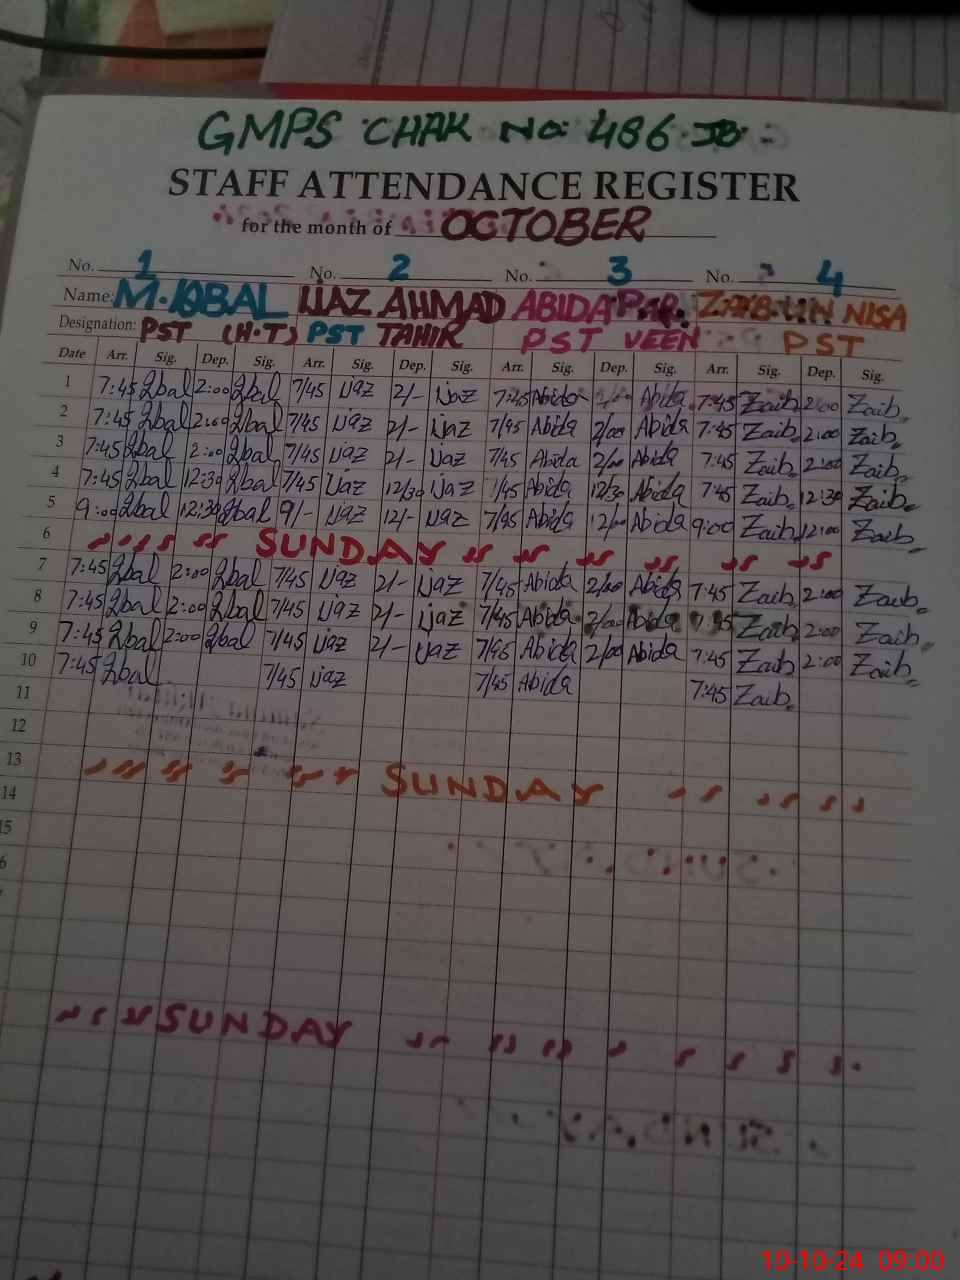 GMPS CHAK No 486 JB
STAFF ATTENDANCE REGISTER
for the month of OCTOBER
No. 1 No. 2 No. 3 No. 4
Name: M.IQBAL IJAZ AHMAD ABIDA PAR. ZAIB UN NISA
Designation: PST (H.T) PST TAHIR PST VEEN PST
Date Arr. Sig. Dep. Sig. Arr. Sig. Dep. Sig. Arr. Sig. Dep. Sig. Arr. Sig. Dep. Sig.
1 7:45 Iqbal 2:00 Iqbal 7/45 ijaz 2/- ijaz 7:45 Abida 2/00 Abida 7:45 Zaib 2:00 Zaib
2 7:45 Iqbal 2:00 Iqbal 7/45 ijaz 2/- ijaz 7/45 Abida 2/00 Abida 7:45 Zaib 2:00 Zaib
3 7:45 Iqbal 2:00 Iqbal 7/45 ijaz 2/- ijaz 7/45 Abida 2/00 Abida 7:45 Zaib 2:00 Zaib
4 7:45 Iqbal 12:30 Iqbal 7/45 ijaz 12/30 ijaz 7/45 Abida 12/30 Abida 7:45 Zaib 12:30 Zaib
5 9:00 Iqbal 12:30 Iqbal 9/- ijaz 12/- ijaz 7/45 Abida 12/00 Abida 9:00 Zaib 12:00 Zaib
6 SUNDAY
7 7:45 Iqbal 2:00 Iqbal 7/45 ijaz 2/- ijaz 7/45 Abida 2/00 Abida 7:45 Zaib 2:00 Zaib
8 7:45 Iqbal 2:00 Iqbal 7/45 ijaz 2/- ijaz 7/45 Abida 2/00 Abida 7:45 Zaib 2:00 Zaib
9 7:45 Iqbal 2:00 Iqbal 7/45 ijaz 2/- ijaz 7/45 Abida 2/00 Abida 7:45 Zaib 2:00 Zaib
10 7:45 Iqbal 7/45 ijaz 7/45 Abida 7:45 Zaib
11
12
13 SUNDAY
14
15
6
SUNDAY
10-10-24 09:00